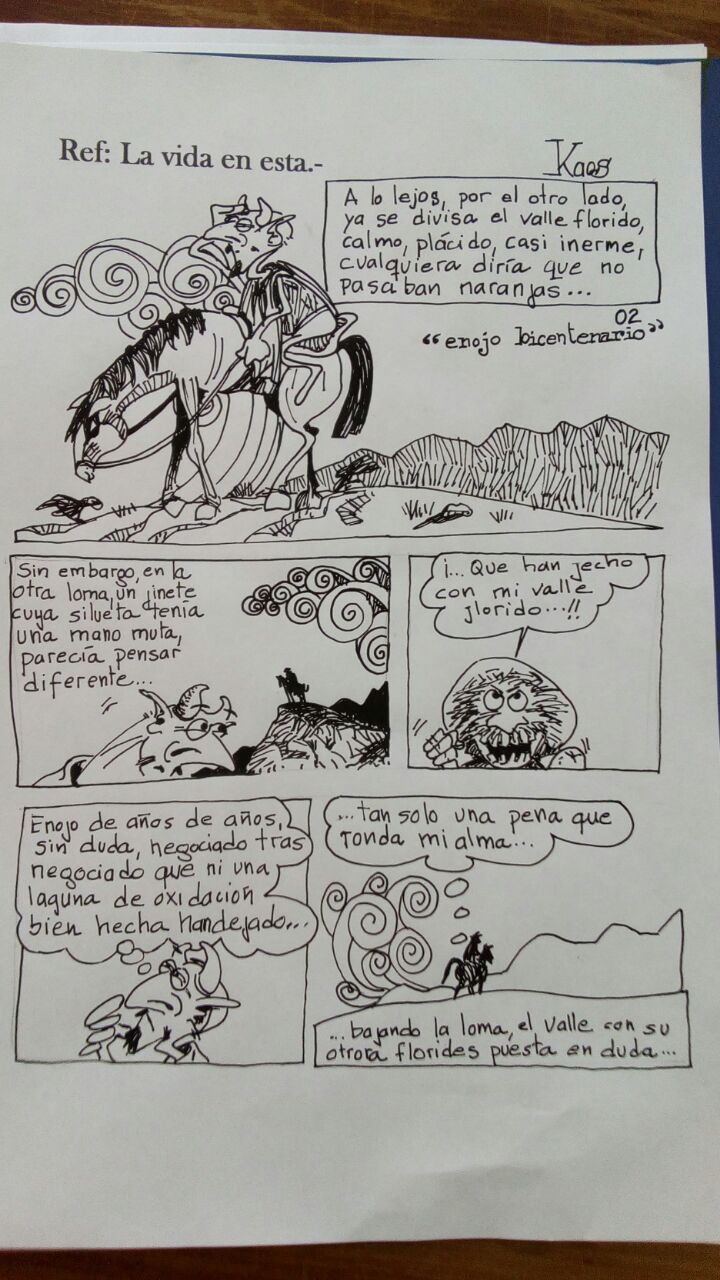 Ref: La vida en esta.-
Kaos
A lo lejos, por el otro lado,
ya se divisa el valle florido,
calmo, plácido, casi inerme,
cualquiera diría que no
pasaban naranjas...
02
"enojo bicentenario"
Sin embargo, en la
otra loma, un jinete
cuya silueta tenía
una mano muta,
parecía pensar
diferente...
¡... Que han jecho
con mi valle
jlorido...!!
Enojo de años de años,
sin duda, negociado tras
negociado que ni una
laguna de oxidación
bien hecha handejado...
...tan solo una pena que
ronda mi alma...
...bajando la loma, el valle con su
otrora florides puesta en duda...